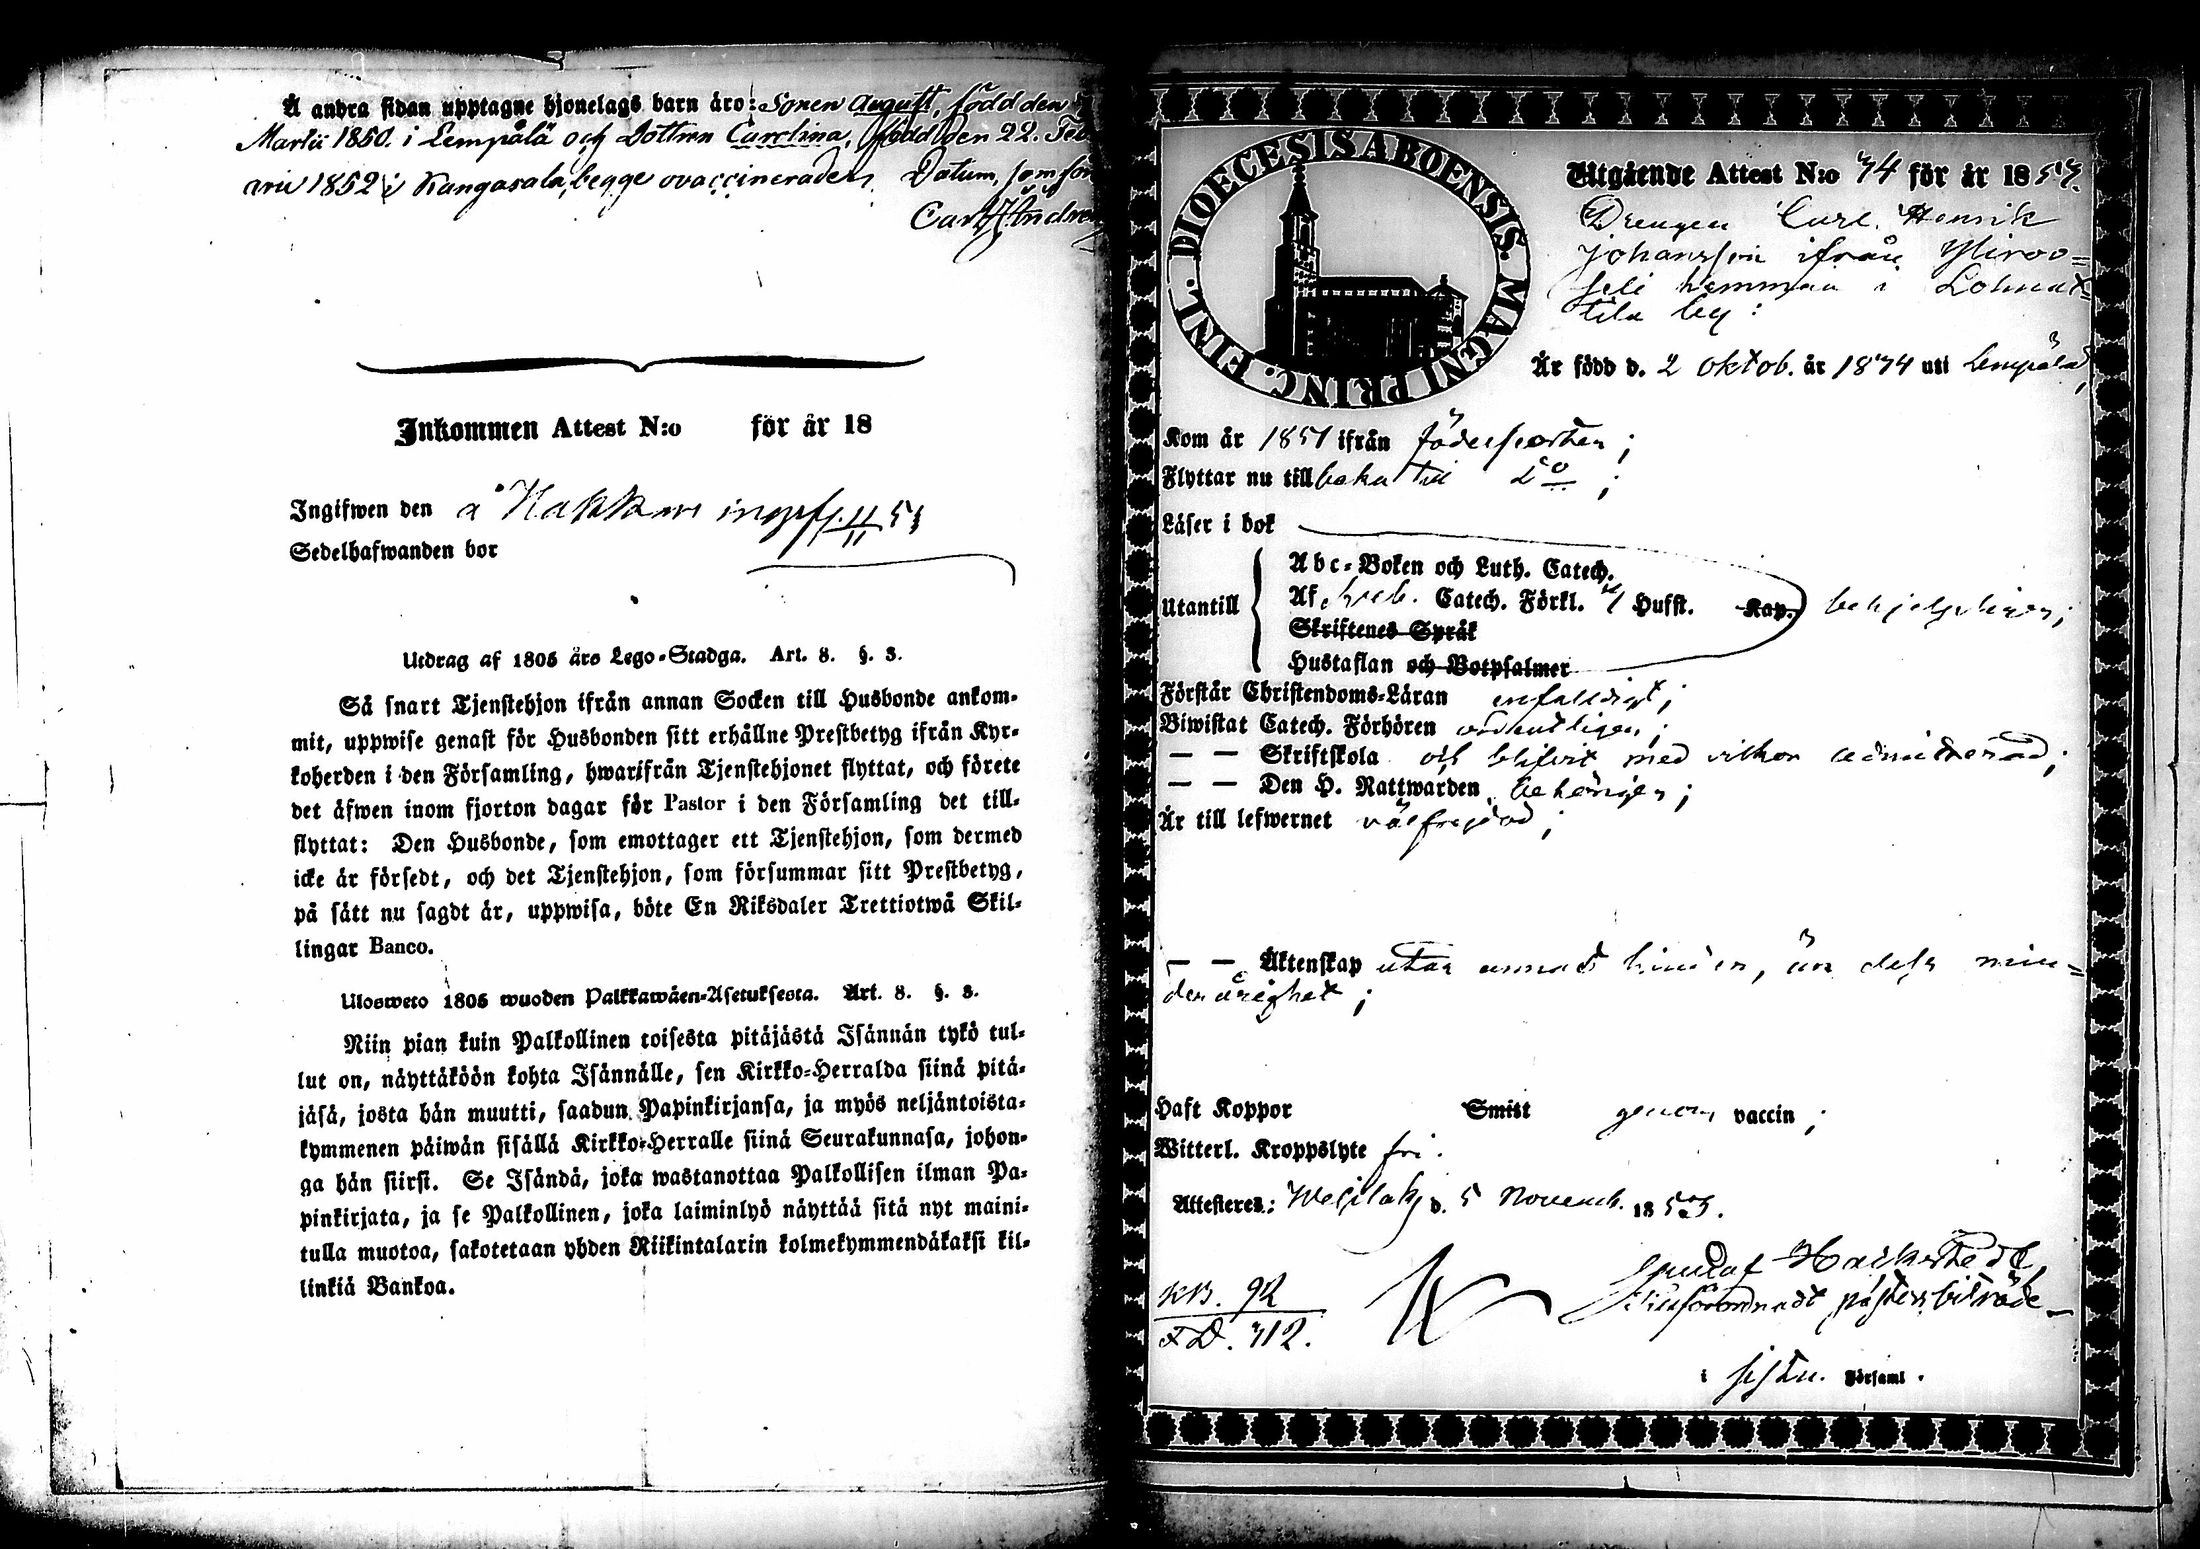 Å andra sidan upptagne hjonelags barn äro: Sonen August, född den
Martii 1850. i Lempälä och Dottren Carolina, född den 22. Feb
arii 1852 i Kangasala, begge ovaccinerade. Datum, som för
Carl
Inkommen Attest N:o för år 18
Ingifwen den å Hakkari ingaf 11/11 53
Sedelhafwanden bor
Utdrag af 1805 års Lego-Stadga. Art. 8. §. 3.
Så snart Tjenstehjon ifrån annan Socken till Husbonde ankom-
mit, uppwise genast för Husbonden sitt erhållne Prestbetyg ifrån Kyr-
koherden i den Församling, hwarifrån Tjenstehjonet flyttat, och förete
det äfwen inom fjorton dagar för Pastor i den Församling det till-
flyttat: Den Husbonde, som emottager ett Tjenstehjon, som dermed
icke är försedt, och det Tjenstehjon, som försummar sitt Prestbetyg,
på sätt nu sagdt är, uppwisa, böte En Riksdaler Trettiotwå Skil-
lingar Banco.
Ulosweto 1805 wuoden Palkkawäen-Asetuksesta. Art. 8. §. 3.
Niin pian kuin Palkollinen toisesta pitäjästä Isännän tykö tul-
lut on, näyttäköön kohta Isännälle, sen Kirkko-Herralda siinä pitä-
jäsä, josta hän muutti, saadun Papinkirjansa, ja myös neljäntoista-
kymmenen päiwän sisällä Kirkko-Herralle siinä Seurakunnasa, johon-
ga hän siirsi. Se Isändä, joka wastanottaa Palkollisen ilman Pa-
pinkirjata, ja se Palkollinen, joka laiminlyö näyttää sitä nyt maini-
tulla muotoa, sakotetaan yhden Riikintalarin kolmekymmendäkaksi kil-
linkiä Bankoa.
DIOECESIS ABOENSIS. MAGNI PRINC. FINL.
Utgående Attest N:o 74 för år 1853.
Drengen Carl Henrik
Johansson ifrån Yliroo=
seli hemman i
tila by:
Är född d. 2 oktob. år 1834 uti Lempälä,
Kom år 1851 ifrån födelseorten;
Flyttar nu till baka till Do;
Läser i bok
Utantill
Abc-Boken och Luth. Catech.
Af Catech. Förkl. Hufst. Kap. behjelpligen;
Skriftenes Språk
Hustaflan och Botpsalmer
Förstår Christendoms-Läran enfaldigt;
Biwistat Catech. Förhören ordentligen;
— — Skriftskola och blifvit med vilkor admitterad;
— — Den H. Nattwarden behörigen;
Är till lefwernet välfrejdad;
— — Äktenskap utan annat hinder, än dess min=
derårighet;
Haft Koppor Smitt genom vaccin;
Witterl. Kroppslyte fri.
Attesteres: Wesilaks d. 5 Novemb. 1853.
KB. 92
FD. 312.
Gustaf
Tillförordnadt pastors biträde
i sistn. Församl.